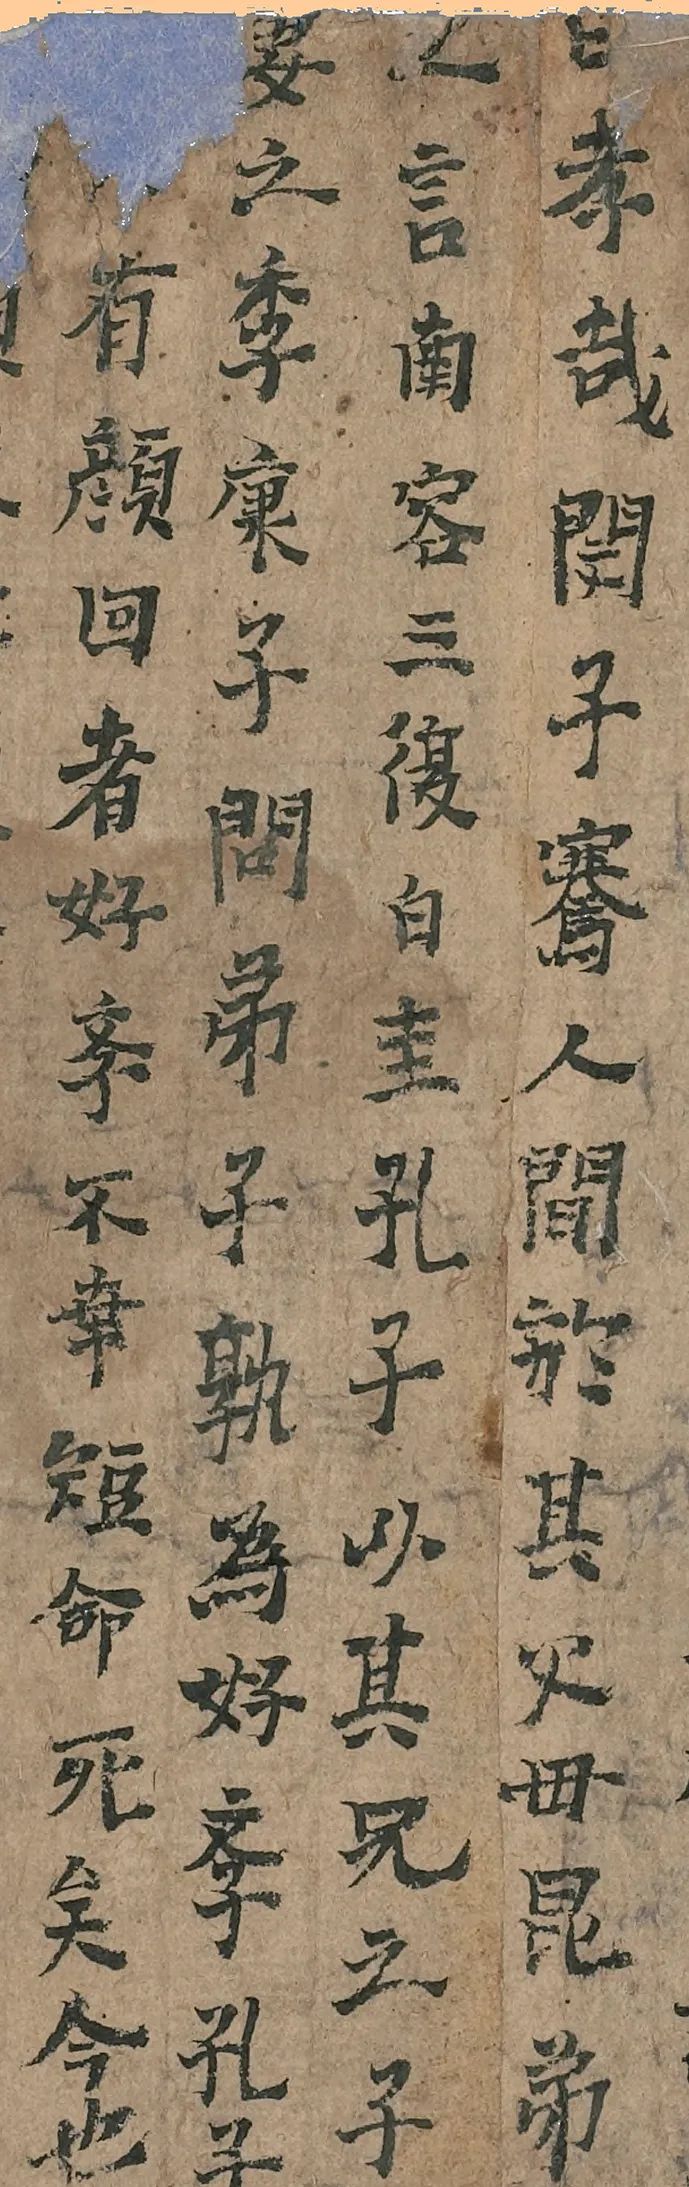 曰孝哉閔子騫人間於其父毋昆弟
之言南容三復白圭孔子以其兄之子
妻之季康子問弟子孰為好斈孔子
有顔回者好斈不幸短命死矣今也